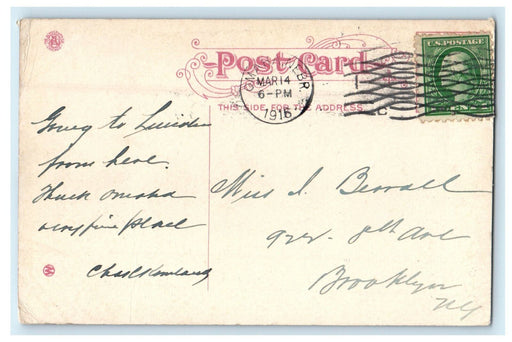 Post Card
U.S. POSTAGE
MAR 14
6-PM
1916
THIS SIDE FOR THE ADDRESS
Going to
from here.
Think Omaha
very fine place
Chas
Miss I.
922- 8th Ave
Brooklyn
NY